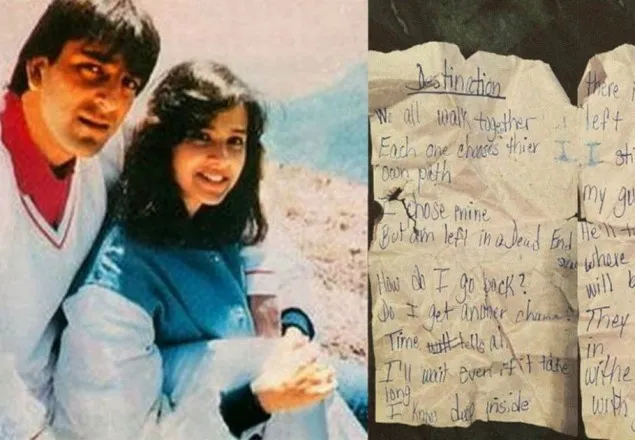 Destination
We all walk together
Each one chooses thier
own path
I chose mine
But am left in a Dead End
How do I go back?
Do I get another
Time tells al
I'll wait even if it take
long
I know deep inside
there
left
I sti
my gu
He'll
where
will b
They
in
withe
with